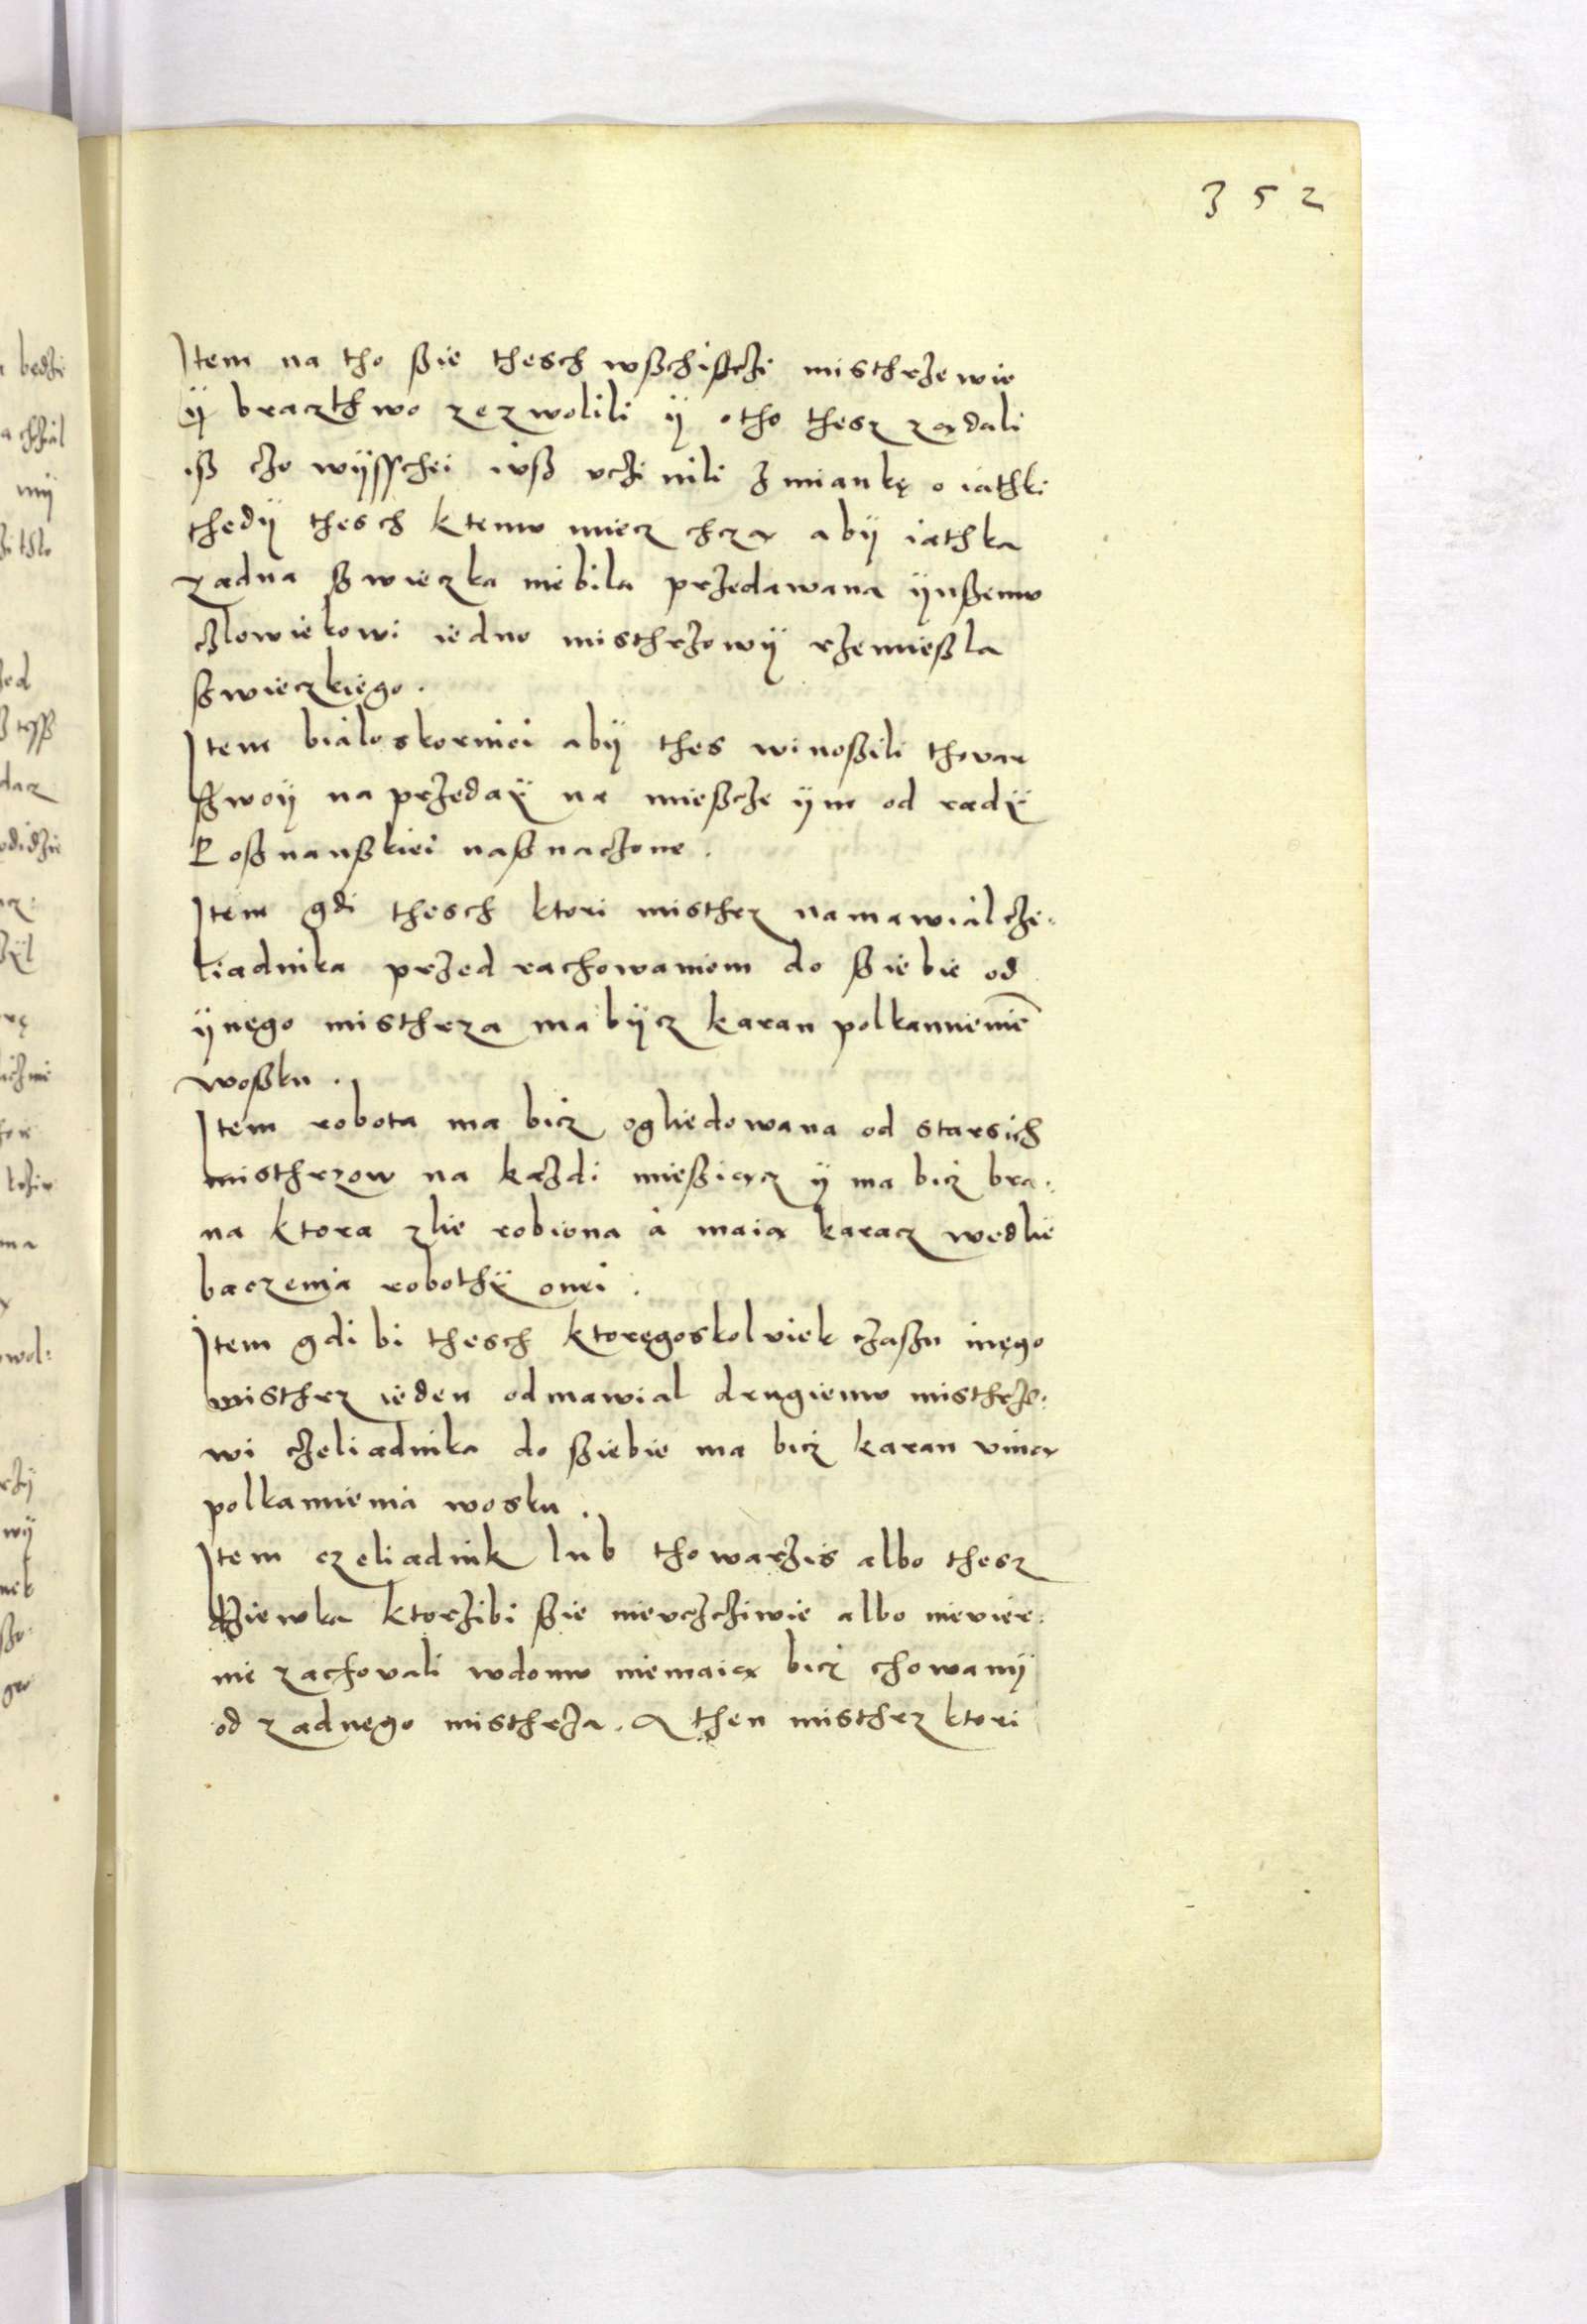 352
Item na tho ßie thesch wßchiſtzi misthrzewie
ÿ braczthwo zezwolili ÿ otho thesz rządali
iß czo wÿſſchei iuß uczinili Zmiankę o iathki
thedÿ thesch ktemu miecz chczą abÿ iathka
zadna ßwieczka niebila przedawana ÿnßemu
czlowiekowi iedno misthrzowÿ rzemießla
ßwieczkiego.
Item bialoskorniei abÿ thes winoßili thovar
ßwoÿ na przedaÿ na mießcze ÿm od radÿ
Poßnanßkiei naßnaczone.
Item gdi thesch ktori misthrz namawial cze-
liadnika przed rachowaniem do ßiebie od
ÿnęgo misthrza ma bÿcz karan polkamieniē
woßku.
Item robota ma bicz ogliedowana od starsich
misthrzow na kazdi mießiącz ÿ ma bicz bra-
na ktora zlie robiona a maią karacz wedlie
baczenia robothÿ onei.
Item gdi bi thesch ktoręgoskolviek czaßu inęgo
misthrz ieden odmawial drugiemu misthrzo-
wi czeliadnika do ßiebie ma bicz karan viną
polkamienia wosku.
Item czeliadnik lub thowarzis albo thesz
dziewka ktorzibi ßie nieuczcziwie albo nievier-
nie zachovali wdomu niemaią bicz chowanÿ
od zadnęgo misthrza. A then misthrz ktori